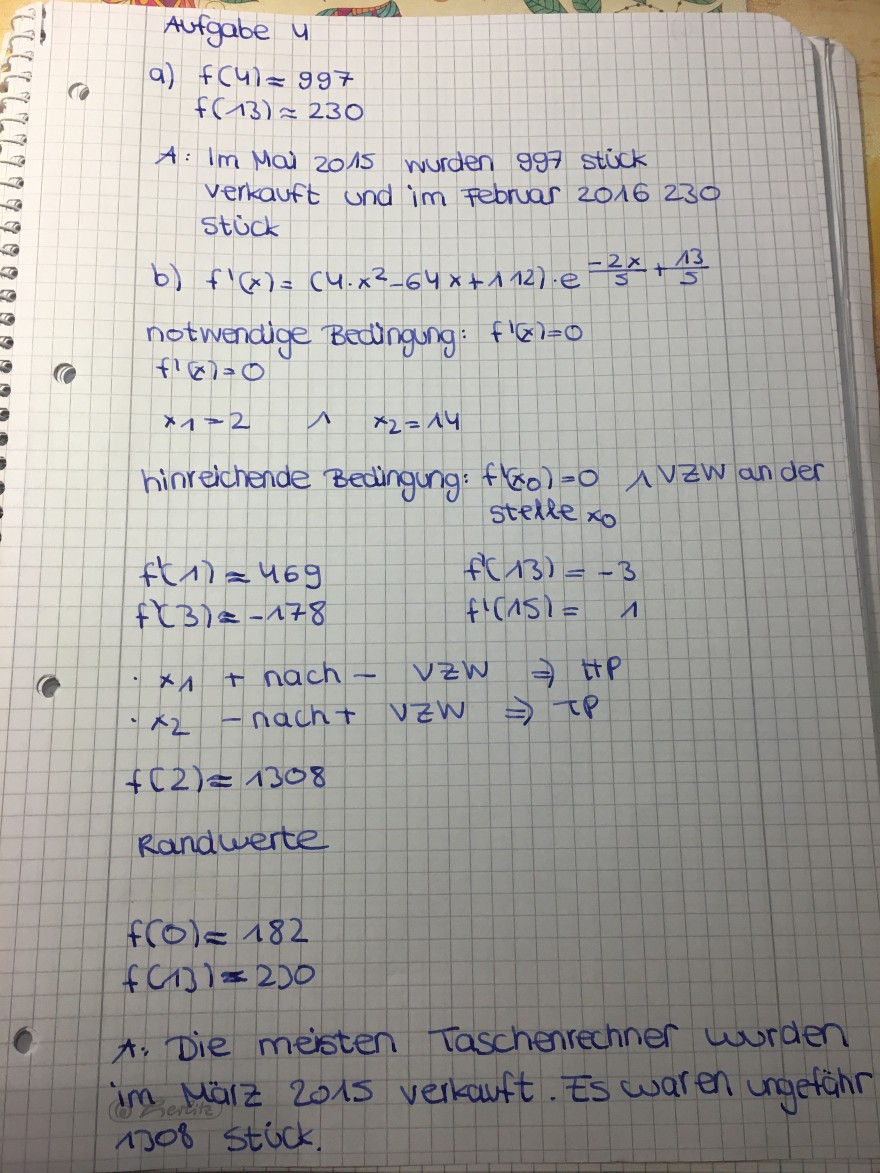 Aufgabe 4
a) f(4) ≈ 997
f(13) ≈ 230
A: Im Mai 2015 wurden 997 stück
verkauft und im Februar 2016 230
Stück
b) f'(x) = (4·x²-64x+112)·e^(-2x/5 + 13/5)
notwendige Bedingung: f'(x)=0
f'(x)=0
x1=2 ∧ x2=14
hinreichende Bedingung: f'(x0)=0 ∧ VZW an der
stelle x0
f'(1) ≈ 469 f'(13) = -3
f'(3) ≈ -178 f'(15) = 1
· x1 + nach - VZW ⇒ HP
· x2 - nach + VZW ⇒ TP
f(2) ≈ 1308
Randwerte
f(0) ≈ 182
f(13) ≈ 230
A: Die meisten Taschenrechner wurden
im März 2015 verkauft. Es waren ungefähr
1308 Stück.